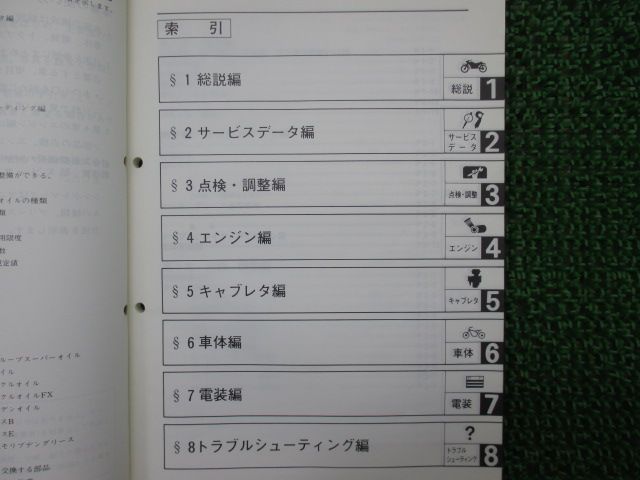 索 引
§ 1 総説編
総説
1
§ 2 サービスデータ編
サービス
データ
2
§ 3 点検・調整編
点検・調整
3
§ 4 エンジン編
エンジン
4
§ 5 キャブレタ編
キャブレタ
5
§ 6 車体編
車体
6
§ 7 電装編
電装
7
§ 8 トラブルシューティング編
?
トラブル
シューティング
8
整備ができる。
オイルの種類
用限度
ループスーパーオイル
クルオイル
クルオイルFX
デンオイル
スB
スE
モリブデングリース
交換する部品